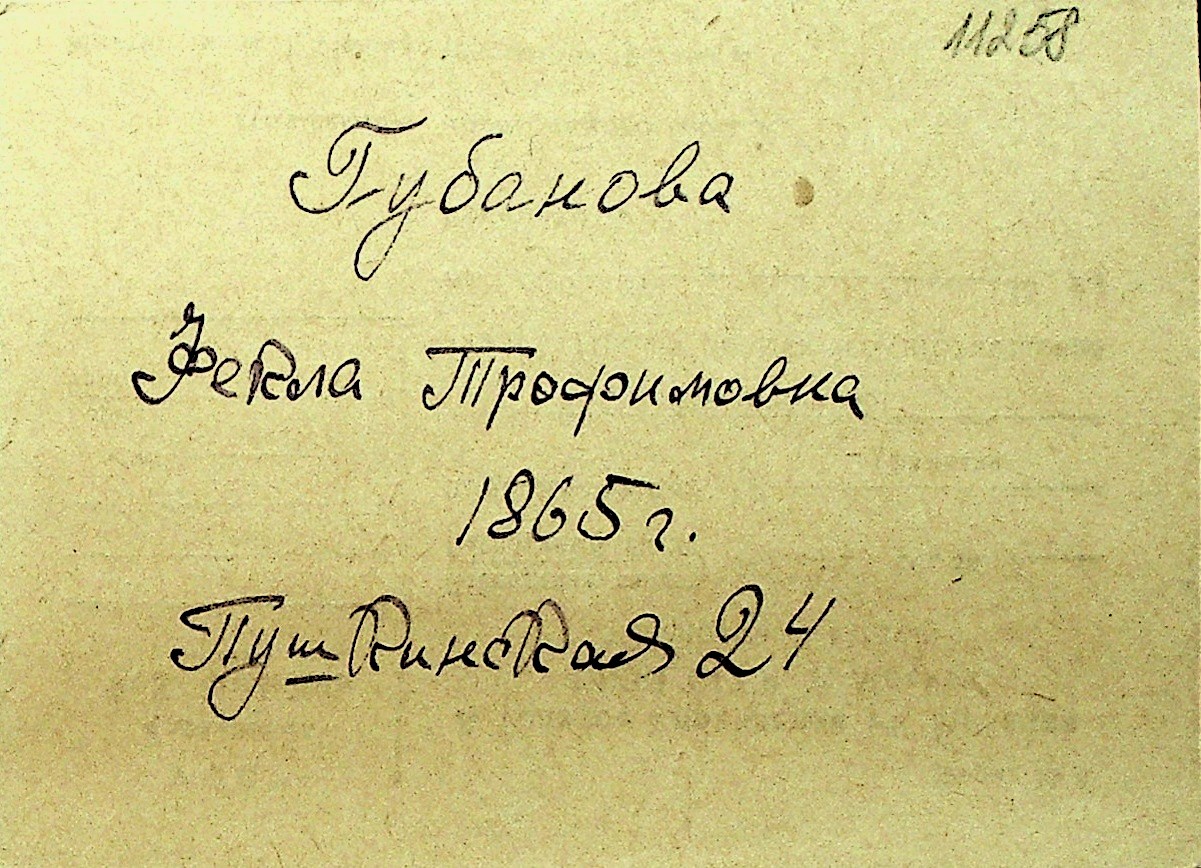 11258
Губанова
Фекла Трофимовна
1865г.
Пушкинская 24